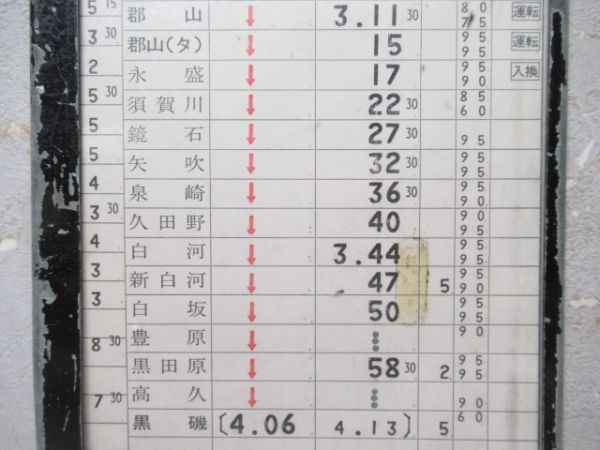 5 15 郡山 ↓ 3.11 30 80 75 運転
3 30 郡山(タ) ↓ 15 95 95 運転
2 永盛 ↓ 17 95 90 入換
5 30 須賀川 ↓ 22 30 85 60
5 鏡石 ↓ 27 30 95
5 矢吹 ↓ 32 30 95 95
4 泉崎 ↓ 36 30 95 90
3 30 久田野 ↓ 40 90 95
4 白河 ↓ 3.44 95 95
3 新白河 ↓ 47 5 90 95
3 白坂 ↓ 50 95 90
8 30 豊原 ↓ ⋮
黒田原 ↓ 58 30 2 95 95
7 30 高久 ↓ ⋮ 90
黒磯 〔4.06 4.13〕 5 60